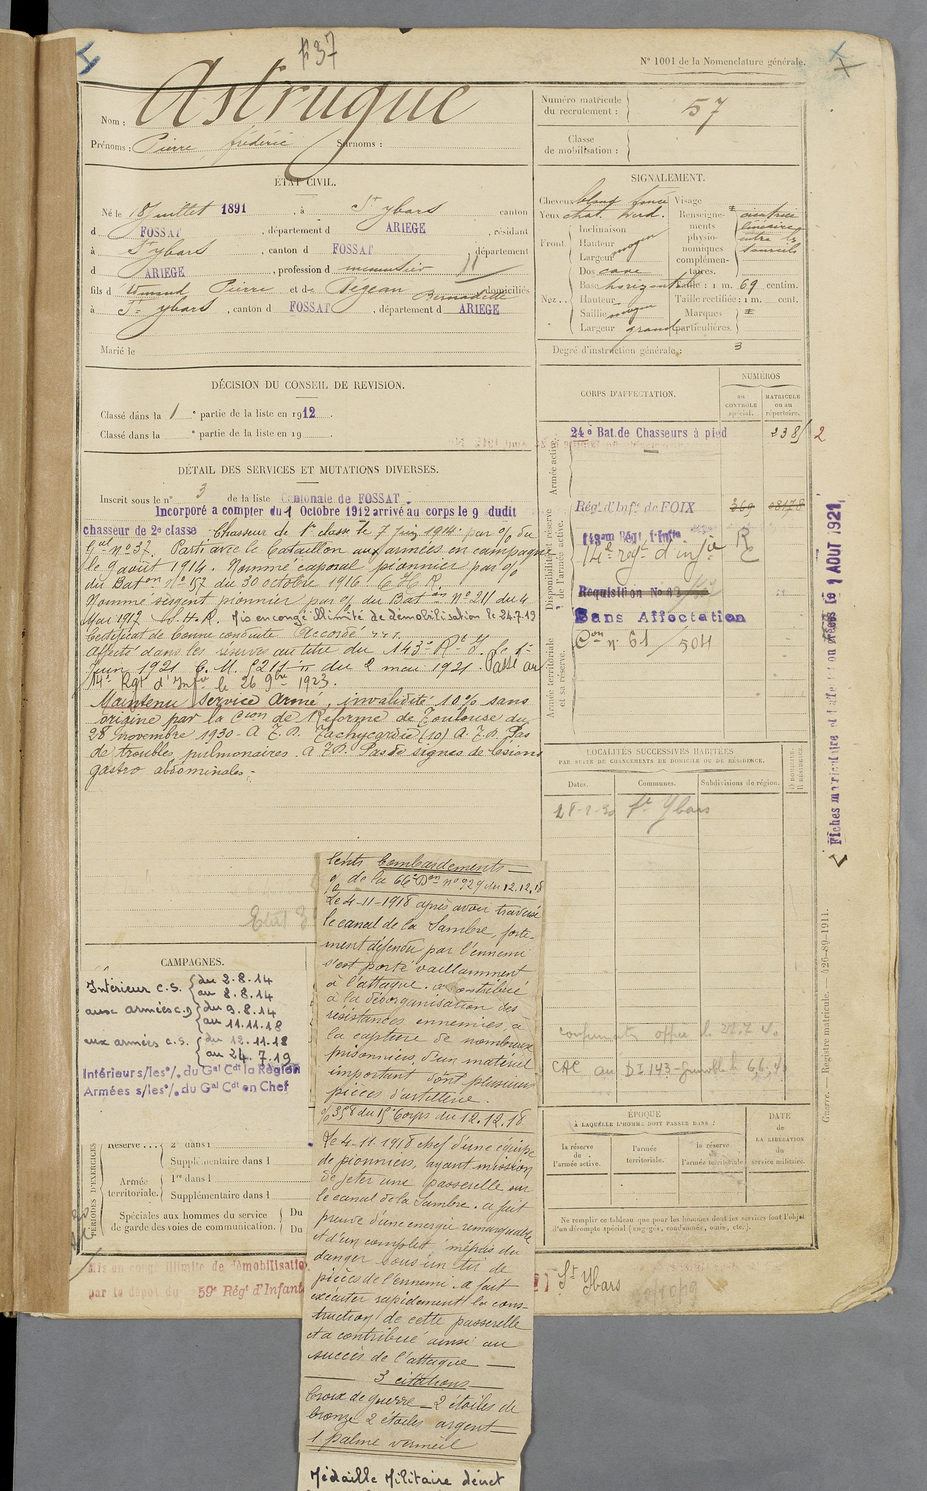 p37
N° 1001 de la Nomenclature générale.
Nom : Astrugue
Prénoms : Pierre frédéric Surnoms :
ÉTAT CIVIL.
Né le 18 Juillet 1891, à St ybars canton
d FOSSAT, département d ARIEGE, résidant
à St ybars, canton d FOSSAT département
d ARIEGE, profession d menuisier
fils d Pierre et de Pegean Bernadette domiciliés
à St ybars, canton d FOSSAT, département d ARIEGE
Marié le
DÉCISION DU CONSEIL DE REVISION.
Classé dans la 1e partie de la liste en 1912.
Classé dans la e partie de la liste en 19
DÉTAIL DES SERVICES ET MUTATIONS DIVERSES.
Inscrit sous le n° 3 de la liste cantonale de FOSSAT.
Incorporé a compter du 1 Octobre 1912 arrivé au corps le 9 dudit
chasseur de 2e classe Chasseur de 1e classe le 7 juin 1914 par % du
Gal n° 37. Parti avec le bataillon aux armées en campagne
le 9 août 1914. Nommé caporal pionnier par %
du Baton n° 157 du 30 octobre 1916 C.H.R.
Nommé sergent pionnier par % du Baton N° 211 du 4
Mai 1917 C.H.R. Mis en congé illimité de démobilisation le 24.7.19
Certificat de bonne conduite Accordé
Affecté dans les réserves au titre du 143e Rt d'I. le 1er
Juin 1921 C.M. du 2 mai 1921. Passé au
14e Rgt d'Infie le 26 9bre 1923.
Maintenu Service Armé, invalidité 10% sans
origine par la Cion de Réforme de Toulouse du
28 novembre 1930 - A.T.P. Tachycardie (10) A.T.P. Pas
de troubles pulmonaires. A.T.P. Pas de signes de lésions
gastro abdominales.
CAMPAGNES.
Intérieur C.S. du 2.8.14
au 8.8.14
aux armées C.D du 9.8.14
au 11.11.18
aux armées C.S. du 12.11.18
au 24.7.19
Intérieur s/les % du Gal Cdt la Région
Armées s/les % du Gal Cdt en Chef
PÉRIODES D'EXERCICES
Réserve ... 2e dans l
Supplémentaire dans l
Armée territoriale. 1re dans l
Supplémentaire dans l
Spéciales aux hommes du service
de garde des voies de communication. Du
Du
Mis en congé illimité de démobilisation
par le dépôt du 59e Rég' d'Infant
St Ybars
lents bombardements
% de la 66e Don n° 929 du 12.12.18
Le 4-11-1918 après avoir traversé
le canal de la Sambre, forte-
ment défendu par l'ennemi
s'est porté vaillamment
à l'attaque. a contribué
à la désorganisation des
résistances ennemies, à
la capture de nombreux
prisonniers, d'un matériel
important dont plusieurs
pièces d'artillerie.
% 358 du 15e Corps du 12.12.18
Le 4.11.1918 chef d'une équipe
de pionniers, ayant mission
de jeter une passerelle sur
le canal de la Sambre. a fait
preuve d'une énergie remarquable
et d'un complet mépris du
danger sous un tir de
pièces de l'ennemi. a fait
exécuter rapidement la cons-
truction de cette passerelle
et a contribué ainsi au
succès de l'attaque
3 citations
Croix de guerre - 2 étoiles de
bronze 2 étoiles argent
1 palme vermeil
Médaille Militaire décret
Numéro matricule du recrutement : 57
Classe de mobilisation :
SIGNALEMENT.
Cheveux blond foncé
Yeux chat. verd.
Front Inclinaison
Hauteur moyen
Largeur
Nez Dos cave
Base horizontale
Hauteur
Saillie moyen
Largeur grand
Visage
Renseignements physionomiques complémentaires. cicatrice linéaire entre les sourcils
Taille : 1 m. 69 centim.
Taille rectifiée : 1 m. cent.
Marques particulières.
Degré d'instruction générale : 3
CORPS D'AFFECTATION.
NUMÉROS
AU CONTRÔLE spécial.
MATRICULE ou au répertoire.
Armée active.
24e Bat. de Chasseurs à pied 2385 2
Disponibilité et réserve de l'armée active.
Rég' d'Inf' de FOIX 369 08178
143em Rég' d'Infie
14e regt d'infie R
Requisition No 42
Sans Affectation
Con n° 61 / 504
Armée territoriale et sa réserve.
LOCALITÉS SUCCESSIVES HABITÉES
PAR SUITE DE CHANGEMENTS DE DOMICILE OU DE RÉSIDENCE.
Dates. Communes. Subdivisions de région. D. DOMICILE. R. RÉSIDENCE.
28-2-30 St Ybars
CAC au DI 143-Grenoble le 6.6.40
ÉPOQUE
À LAQUELLE L'HOMME DOIT PASSER DANS :
la réserve de l'armée active.
l'armée territoriale.
la réserve de l'armée territoriale.
DATE de LA LIBÉRATION du service militaire.
Ne remplir ce tableau que pour les hommes dont les services font l'objet d'un décompte spécial (engagés, condamnés, omis, etc.).
Guerre. — Registre matricule. — 426-89-1911.